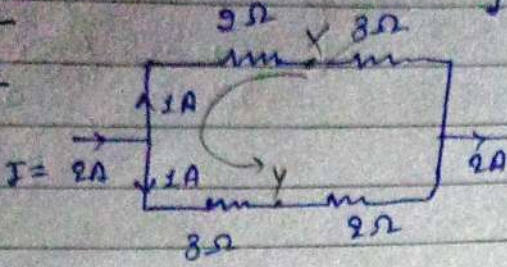 2Ω X 3Ω
1A
I = 2A 1A 2A
Y
3Ω 2Ω